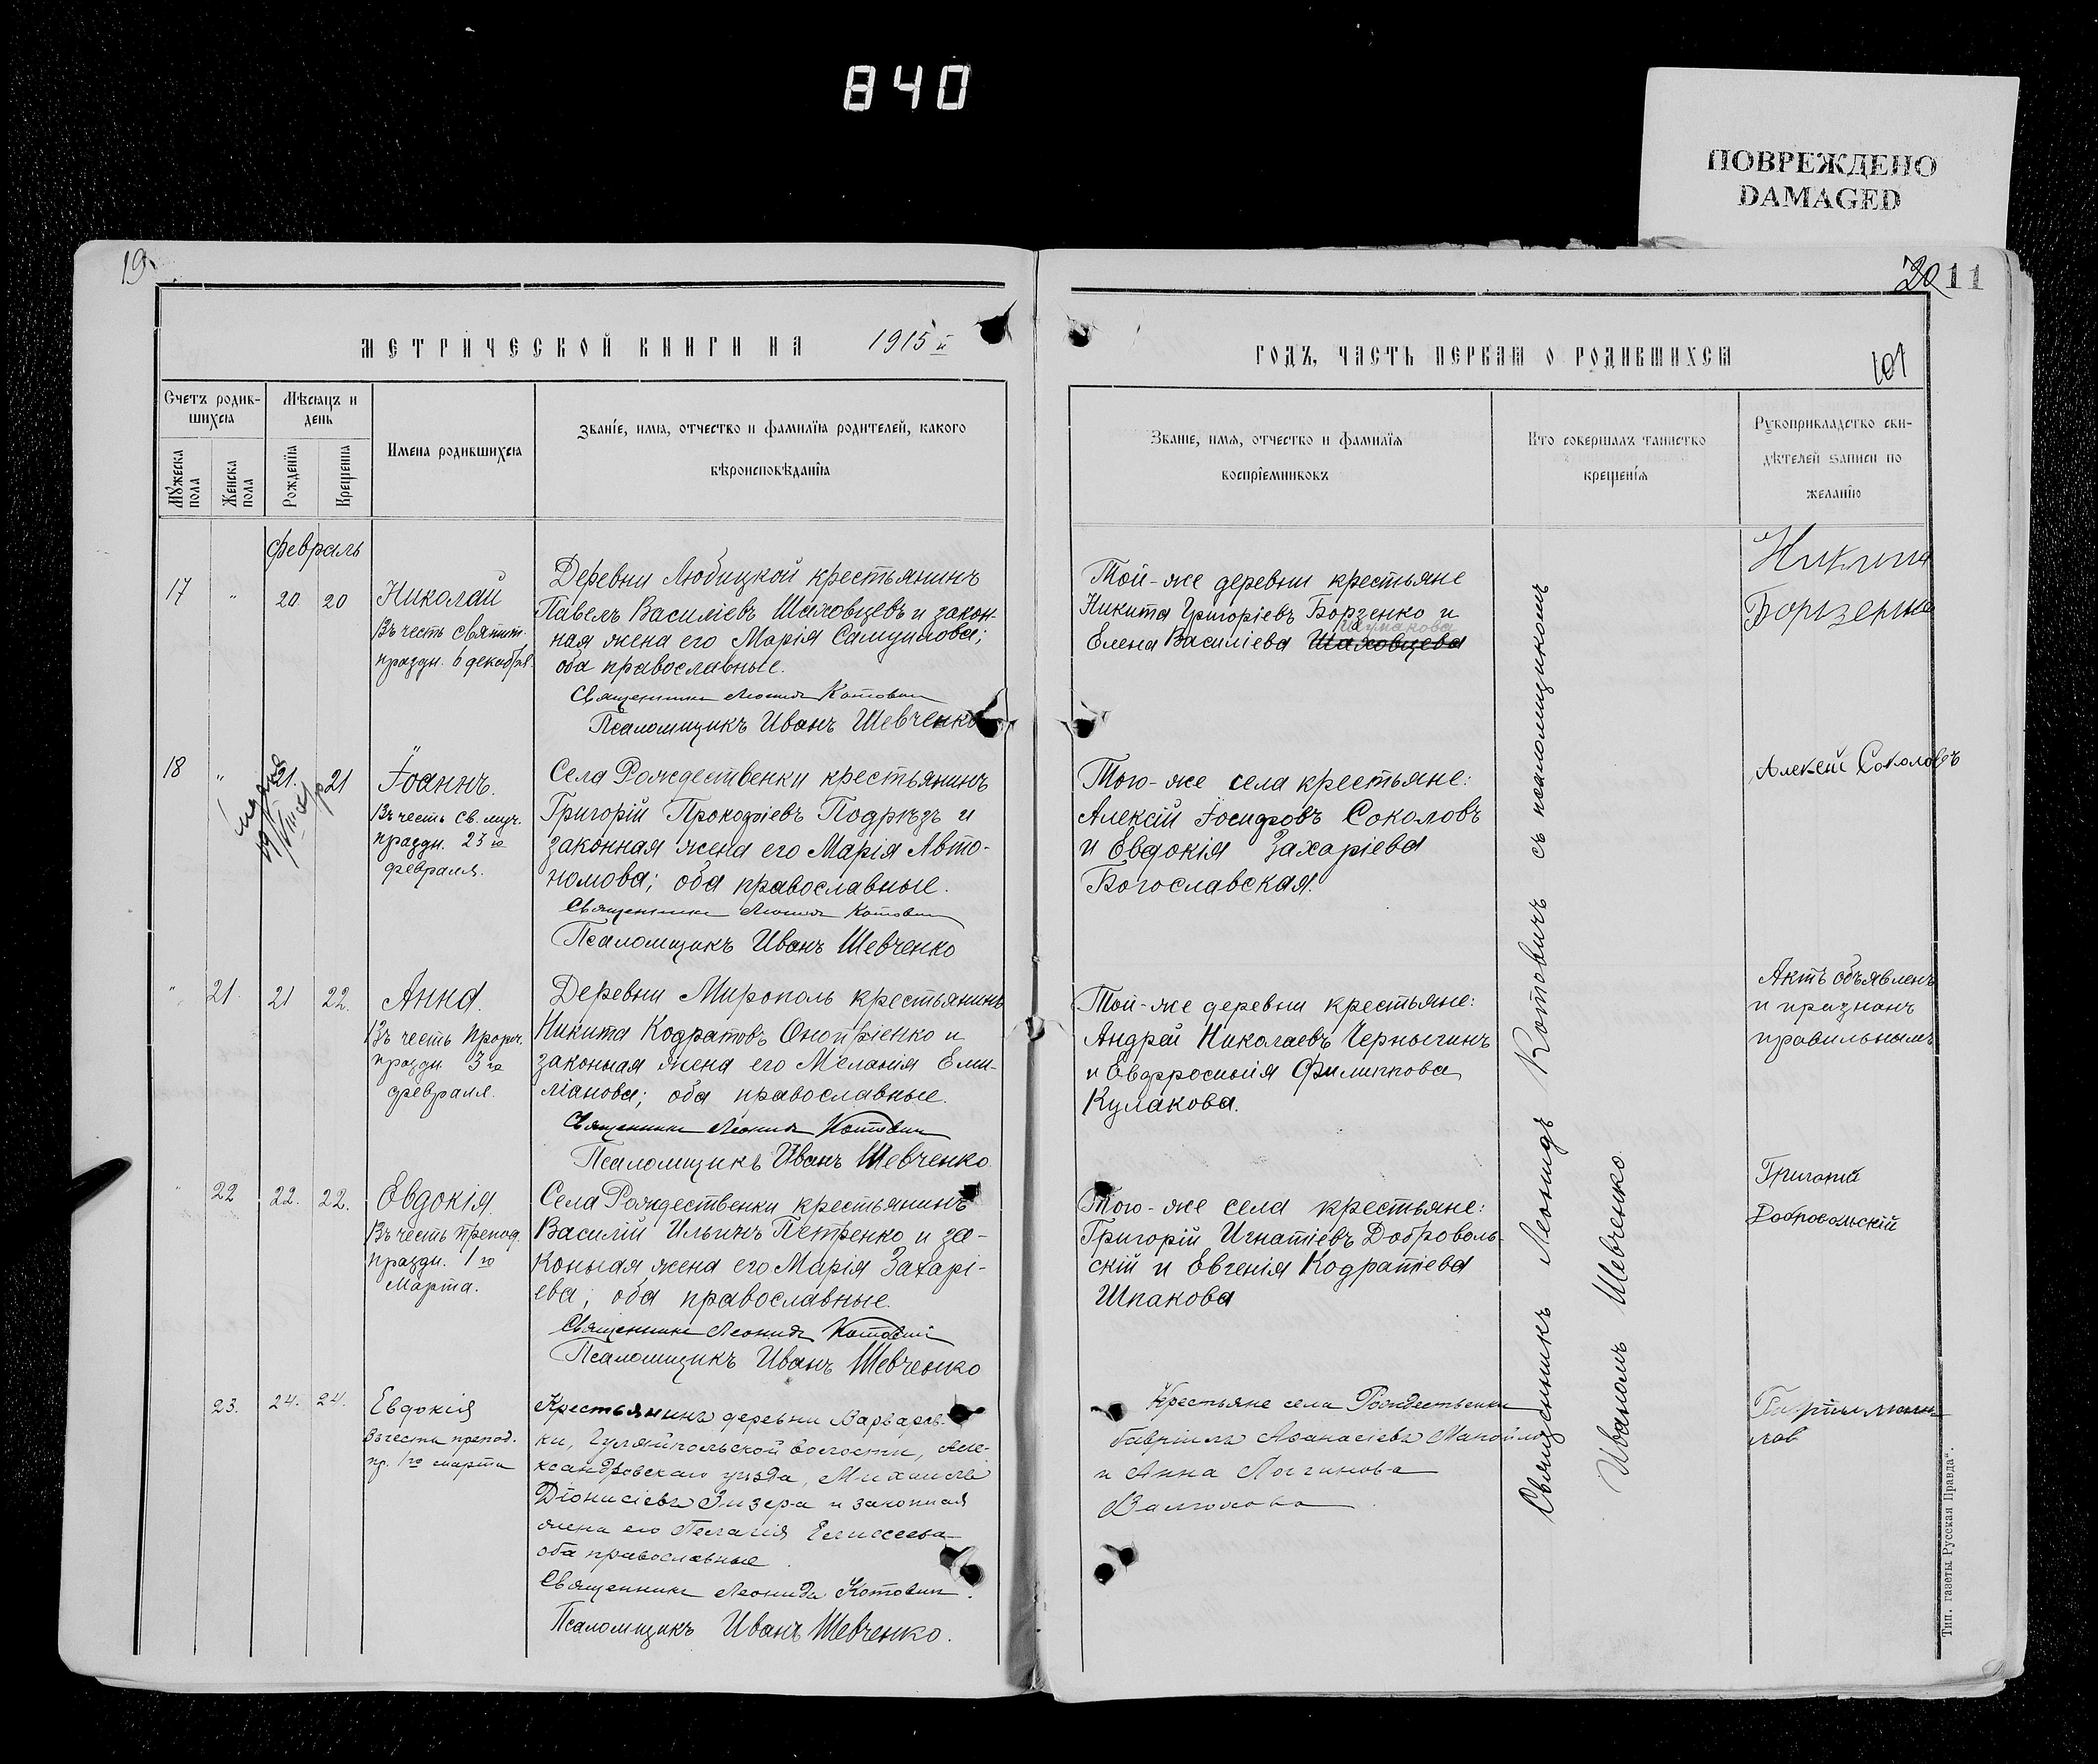 840
ПОВРЕЖДЕНО
DAMAGED
19
20
11
МЕТРИЧЕСКОЙ КНИГИ НА 1915 й
Счетъ родив-
шихсѧ
Мѣсѧцъ и
день
Имена родившихсѧ
Званїе, имѧ, отчество и фамилїѧ родителей, какого
вѣроисповѣданїѧ
Мꙋжеска
пола
Женска
пола
Рожденїѧ
Крещенїѧ
Февраль
17 " 20 20 Николай
Въ честь Святит.
праздн. 6 декабря.
Деревни Любицкой крестьянинъ
Павелъ Василіевъ Шаховцевъ и закон-
ная жена его Марія Самуилова;
оба православные.
Священникъ Леонидъ Котовичъ
Псаломщикъ Иванъ Шевченко
18 " 21. 21 Іоаннъ.
Въ честь св. муч.
праздн. 23 го
февраля.
Села Рождественки крестьянинъ
Григорій Прокофіевъ Подрѣзъ и
законная жена его Марія Авто-
номова; оба православные.
Священникъ Леонидъ Котовичъ
Псаломщикъ Иванъ Шевченко
" 21. 21 22. Анна.
Въ честь Прорч.
праздн. 3 го
февраля.
Деревни Мирополь крестьянинъ
Никита Кодратовъ Онопріенко и
законная жена его Меланія Еми-
ліанова; оба православные.
Священникъ Леонидъ Котовичъ
Псаломщикъ Иванъ Шевченко
" 22 22. 22. Евдокія.
Въ честь препод.
праздн. 1 го
Марта.
Села Рождественки крестьянинъ
Василій Ильинъ Петренко и за-
конная жена его Марія Захарі-
ева; оба православные.
Священникъ Леонидъ Котовичъ
Псаломщикъ Иванъ Шевченко
23. 24. 24. Евдокія
Въ честь препод.
пр. 1го марта
Крестьянинъ деревни Варваров-
ки, Гуляйпольской волости, Але-
ксандровскаго уѣзда, Михаилъ
Діонисіевъ Зизера и законная
жена его Пелагія Елисеева
оба православные.
Священникъ Леонидъ Котовичъ.
Псаломщикъ Иванъ Шевченко.
ГОДЪ, ЧАСТЬ ПЕРВАѦ О РОДИВШИХСѦ
101
Званіе, имѧ, отчество и фамилїѧ
воспрїемниковъ
Кто совершалъ таинство
крещенїѧ
Рꙋкоприкладство сви-
дѣтелей записи по
желанїю
Той-же деревни крестьяне
Никита Григоріевъ Борзенко и
Чумакова
Елена Василіева Шаховцева
Никита
Борзенко
Того-же села крестьяне:
Алексій Іосифовъ Соколовъ
и Евдокія Захаріева
Богославская.
Алексѣй Соколовъ
Той-же деревни крестьяне:
Андрей Николаевъ Чернышинъ
и Евфросинія Филиппова
Кулакова.
Актъ объявленъ
и признанъ
правильнымъ
Того-же села крестьяне:
Григорій Игнатіевъ Доброволь-
скій и Евгенія Кодратіева
Шпакова
Григорій
Добровольскій
Крестьяне села Рождественки
Гавріилъ Аѳанасіевъ Манойло
и Анна Логинова
Священникъ Леонидъ Котовичъ съ псаломщикомъ
Иваномъ Шевченко
Тип. газеты Русская Правда".